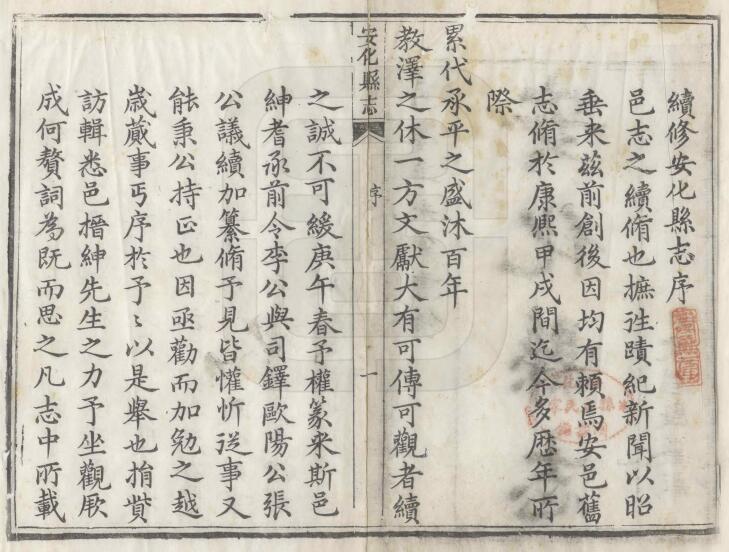 續修安化縣志序
邑志之續脩也摭往蹟紀新聞以昭
垂来茲前創後因均有賴焉安邑舊
志脩於康熙甲戌間迄今多歴年所
際
累代承平之盛沐百年
教澤之休一方文獻大有可傳可觀者續
安化縣志
序
一
之誠不可緩庚午春予權篆来斯邑
紳耆承前令李公與司鐸歐陽公張
公議續加纂脩予見皆懽忻従事又
能秉公持正也因亟勸而加勉之越
歳蕆事丐序於予〻以是舉也捐貲
訪輯悉邑搢紳先生之力予坐觀厥
成何贅詞為既而思之凡志中所載